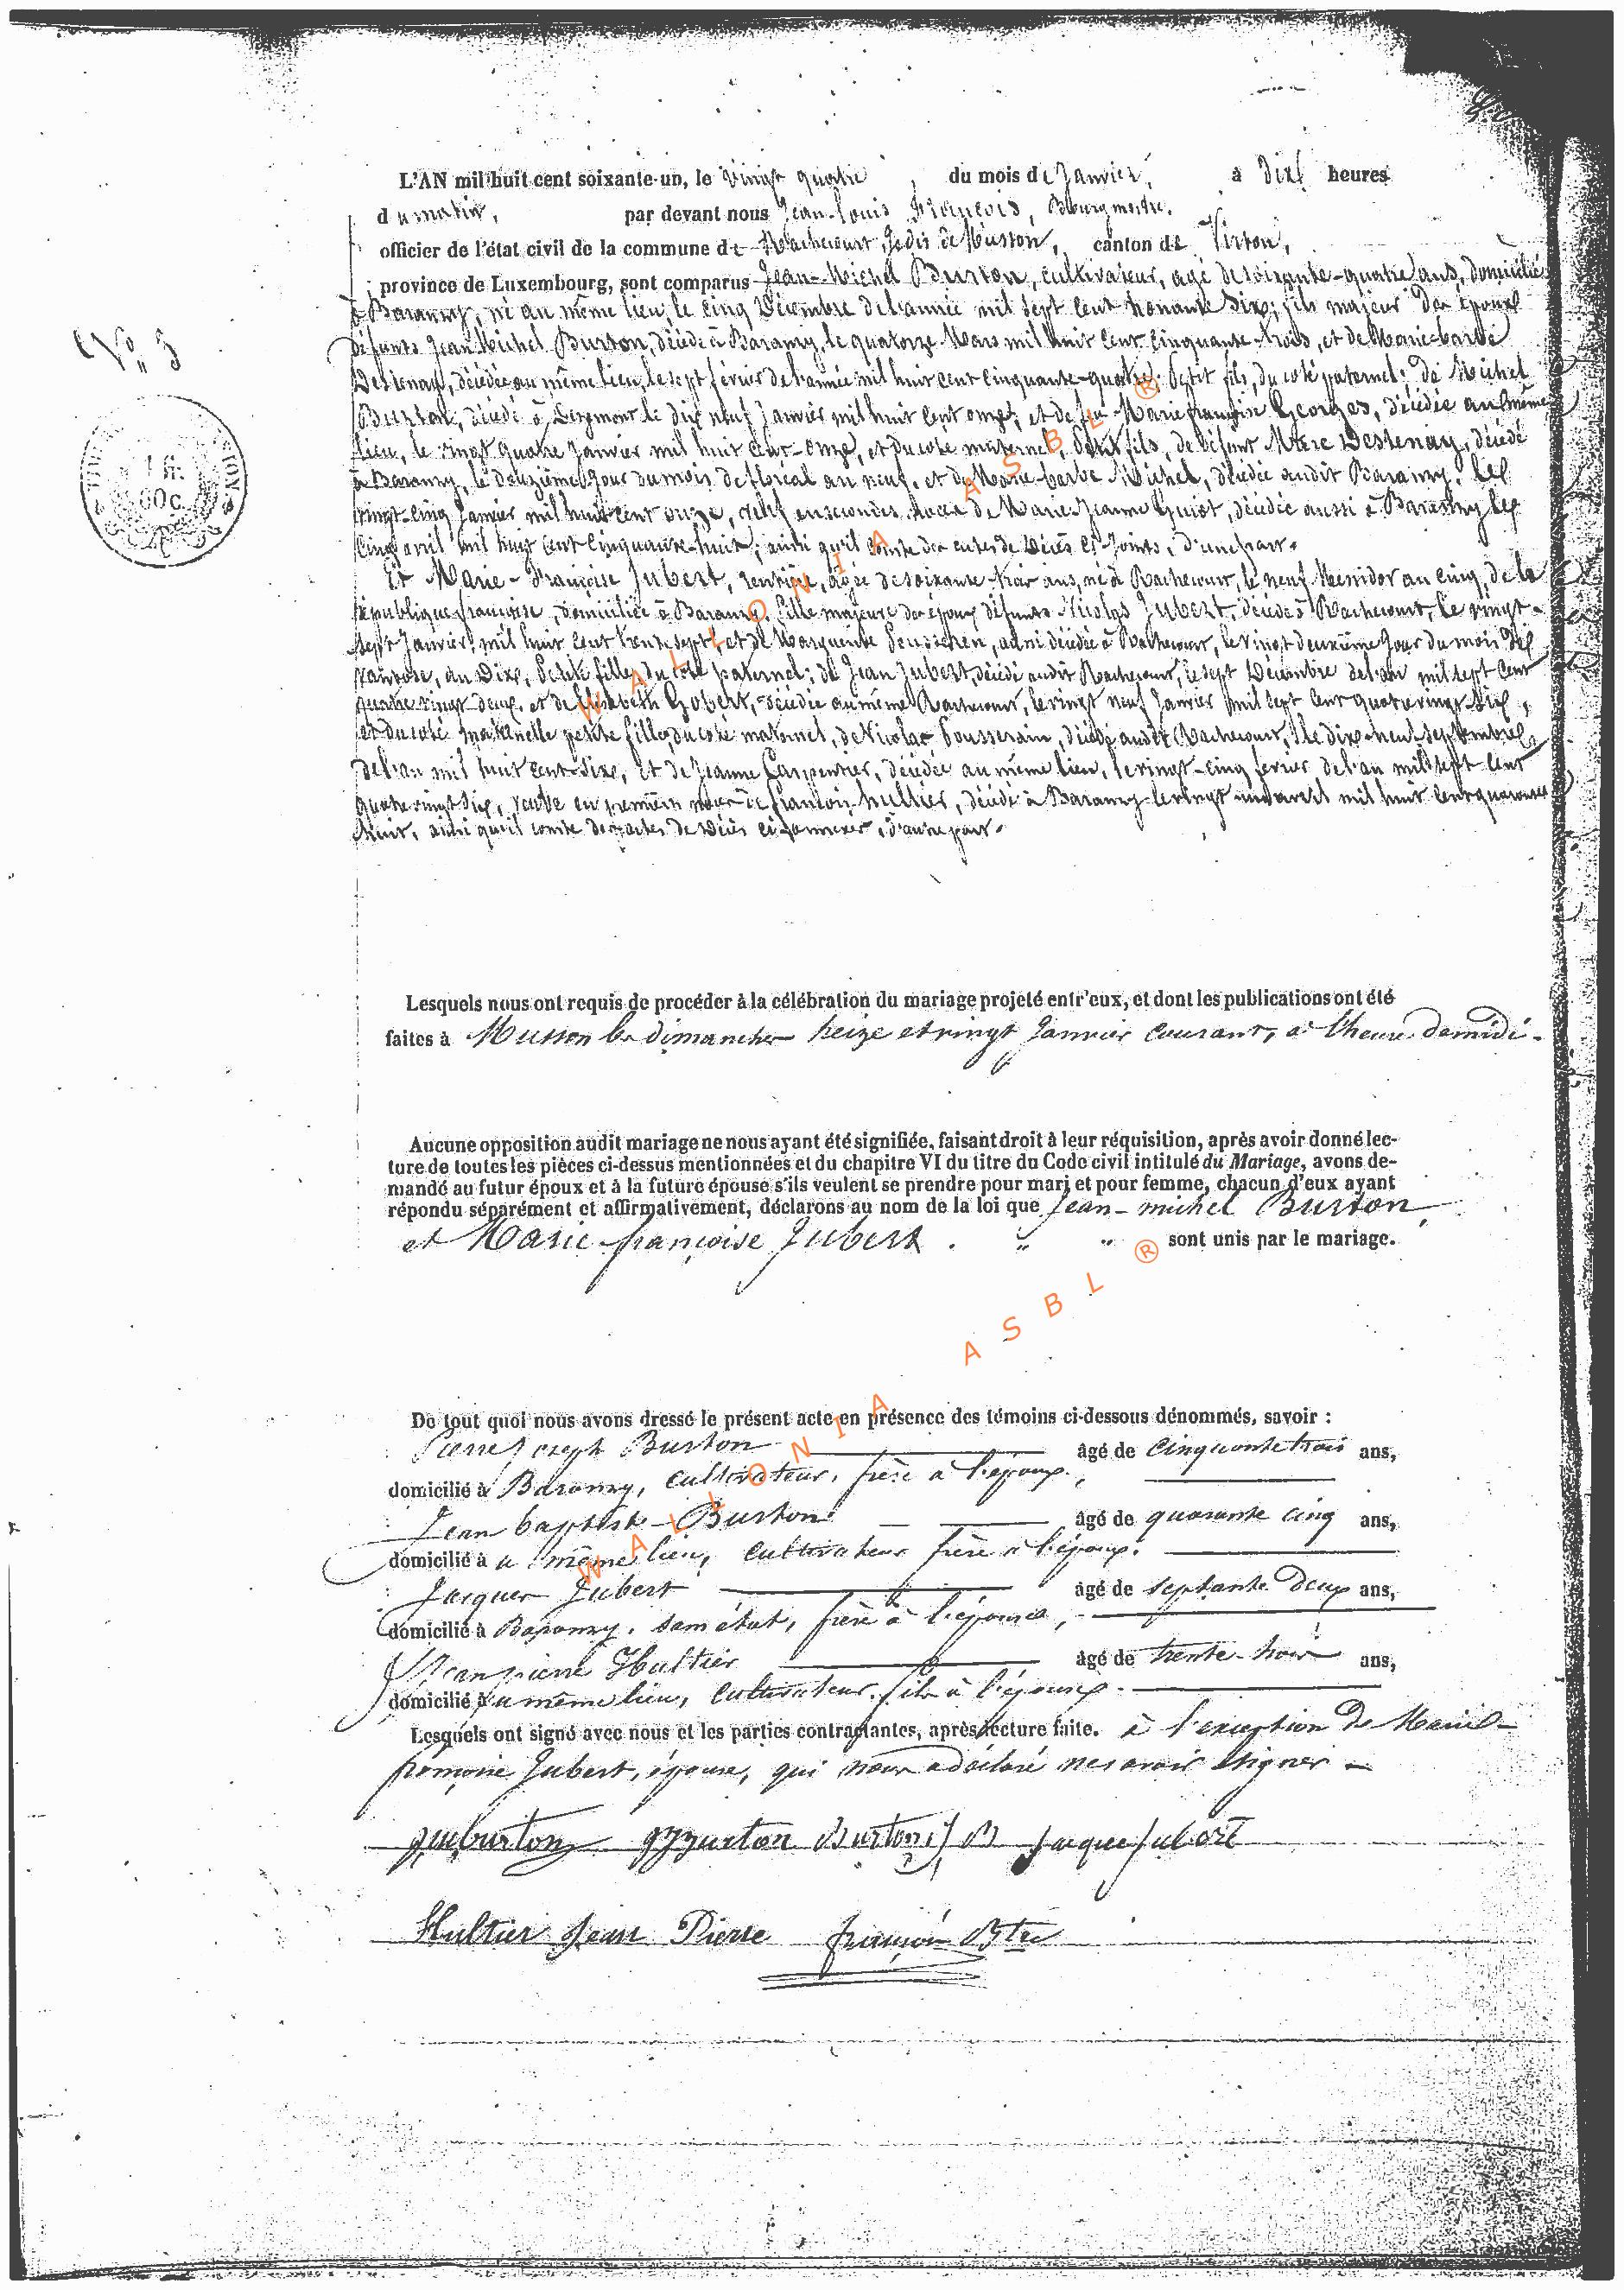 N° 3
L'AN mil huit cent soixante-un, le vingt quatre, du mois de Janvier, à Dix heures
du matin, par devant nous Jean-Louis François, Bourgmestre,
officier de l'état civil de la commune de Rachecourt, Jadis de Musson, canton de Virton,
province de Luxembourg, sont comparus Jean-Michel Burton, cultivateur, agé de soixante-quatre ans, domicilié
à Baranzy, né au même lieu, le cinq Décembre de l'année mil sept cent nonante Six; fils majeur des époux
défunts Jean Michel Burton, décédé à Baranzy, le quatorze Mars mil huit cent cinquante-trois, et de Marie-barbe
Destenay, décédée au même lieu, le sept février de l'année mil huit cent cinquante-quatre; Petit fils, du coté paternel: de Michel
Burton, décédé à le dix neuf Janvier mil huit cent onze; et de Marie françoise Georges, décédée au même
lieu, le vingt quatre Janvier mil huit cent-onze, et du coté maternel, petit fils, de défunt Marc Destenay, décédé
à Baranzy, le deuxième Jour du mois de floréal an neuf. et de Marie-barbe Michel, décédée audit Baranzy, le
vingt-cinq Janvier mil huit cent onze, veuf en secondes noces de Marie-Jeanne Guiot, décédée aussi à Baranzy le
Cinq avril mil huit cent Cinquante-huit; ainsi qu'il conste des actes de Décès ci-Joints, d'une part.
Et Marie-Françoise Jubert, rentière, agée de soixante-trois ans, né à Rachecourt, le neuf Messidor an cinq, de la
république françoise, domiciliée à Baranzy, fille majeure des époux défunts Nicolas Jubert, décédé à Rachecourt, le vingt-
sept Janvier mil huit cent trente sept, et de Marguerite, aussi décédée à Rachecourt, le vingt deuxième Jour du mois de
Ventose, an Dix, Petite fille du coté paternel; de Jean Jubert, décédé audit Rachecourt, le sept Décembre de l'an mil sept cent
quatre vingt deux, et de Elisabeth Gobert, décédée au même Rachecourt, le vingt neuf Janvier mil sept cent quatrevingt-Six,
et du coté maternelle petite fille, du coté maternel, de Nicolas Pousserain, décédé audit Rachecourt, le dix-neuf Septembre
de l'an mil huit cent-six, et de Jeanne Carpentier, décédée au même lieu, le vingt-cinq fevrier de l'an mil sept cent
quatre vingt Six, veuve en premières noces de francois hultier, décédé à Baranzy mil huit cent quarante
huit, ainsi qu'il conste des actes de Décès ci-annexés, d'autre part.
Lesquels nous ont requis de procéder à la célébration du mariage projeté entr'eux, et dont les publications ont été
faites à Musson les dimanches treize et vingt Janvier courant, à l'heure de midi.
Aucune opposition audit mariage ne nous ayant été signifiée, faisant droit à leur réquisition, après avoir donné lec-
ture de toutes les pièces ci-dessus mentionnées et du chapitre VI du titre du Code civil intitulé du Mariage, avons de-
mandé au futur époux et à la future épouse s'ils veulent se prendre pour mari et pour femme, chacun d'eux ayant
répondu séparément et affirmativement, déclarons au nom de la loi que Jean-michel Burton
et Marie-françoise Jubert. " " sont unis par le mariage.
De tout quoi nous avons dressé le présent acte en présence des témoins ci-dessous dénommés, savoir :
Pierre Joseph Burton âgé de cinquante trois ans,
domicilié à Baranzy, cultivateur, frère à l'époux,
Jean baptiste Burton âgé de quarante cinq ans,
domicilié au même lieu, cultivateur frère à l'époux.
Jacques Jubert âgé de septante Deux ans,
domicilié à Baranzy, sans état, frère à l'épouse,
Jean pierre Hultier âgé de trente-trois ans,
domicilié au même lieu, cultivateur, fils à l'épouse.
Lesquels ont signé avec nous et les parties contractantes, après lecture faite. à l'exception de Marie-
françoise Jubert, épouse, qui nous a déclaré ne savoir signer.
jmburton pjburton Burton j B jacque jubert
Hultier Jean Pierre françois Btre
WALLONIA ASBL ®
WALLONIA ASBL ®